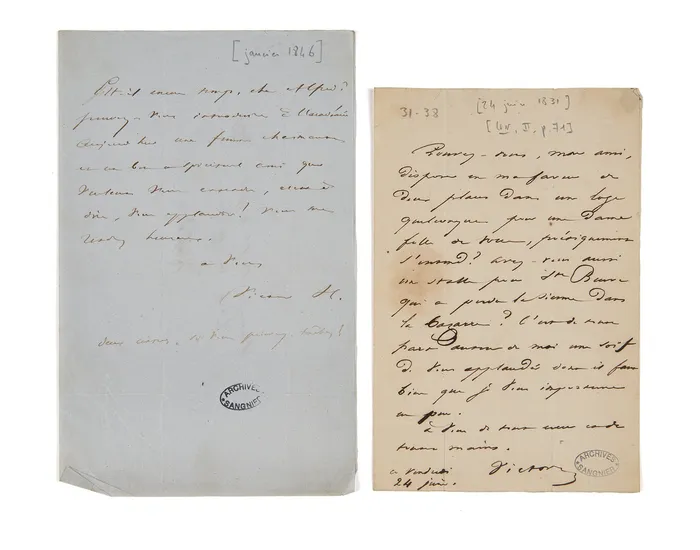 [janvier 1846]
Est-il encore temps, cher Alfred?
pouvez-vous introduire à l'Académie
aujourd'hui une femme charmante
et un bon
Vous
dire, Vous applaudir! Vous me
rendrez heureux.
à Vous
Victor H.
deux si Vous pouvez
ARCHIVES
SANGNIER
31-38
[24 juin 1831]
[CLN, II, p. 71]
Pouvez-vous, mon ami,
disposer en ma faveur de
deux places dans une loge
quelconque pour une Dame
folle de vous,
s'entend? Avez-vous aussi
une stalle pour Ste Beuve
qui a perdu la sienne dans
la bagarre? C'est de
part comme de moi une soif
de Vous applaudir dont il faut
bien que je Vous importune
un peu.
à Vous de tout cœur

ce Vendredi
24 juin.
Victor
ARCHIVES
SANGNIER